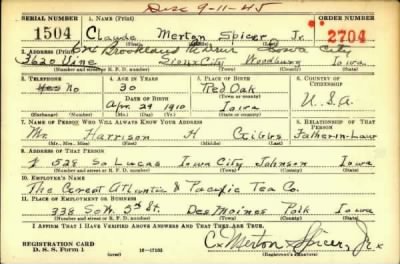 Disc 9-11-45
SERIAL NUMBER 1. NAME (Print) ORDER NUMBER
1504 Claude Merton Spicer Jr. 2704
(First) (Middle) (Last)
2. ADDRESS (Print) Brookland Iowa City
3620 Vine Sioux City Woodbury Iowa
(Number and street or R. F. D. number) (Town) (County) (State)
3. TELEPHONE 4. AGE IN YEARS 5. PLACE OF BIRTH 6. COUNTRY OF CITIZENSHIP
No 30 Red Oak
DATE OF BIRTH (Town or county)
Apr. 29 1910 Iowa U.S.A.
(Exchange) (Number) (Mo.) (Day) (Yr.) (State or country)
7. NAME OF PERSON WHO WILL ALWAYS KNOW YOUR ADDRESS 8. RELATIONSHIP OF THAT PERSON
Mr. Harrison H Gibbs Father-in-Law
(Mr., Mrs., Miss) (First) (Middle) (Last)
9. ADDRESS OF THAT PERSON
528 So Lucas Iowa City Johnson Iowa
(Number and street or R. F. D. number) (Town) (County) (State)
10. EMPLOYER'S NAME
The Great Atlantic & Pacific Tea Co.
11. PLACE OF EMPLOYMENT OR BUSINESS
338 S.W. 5th St. Des Moines Polk Iowa
(Number and street or R. F. D. number) (Town) (County) (State)
I AFFIRM THAT I HAVE VERIFIED ABOVE ANSWERS AND THAT THEY ARE TRUE.
REGISTRATION CARD
D. S. S. Form 1 (over) C. Merton Spicer, Jr.
(Registrant's signature)